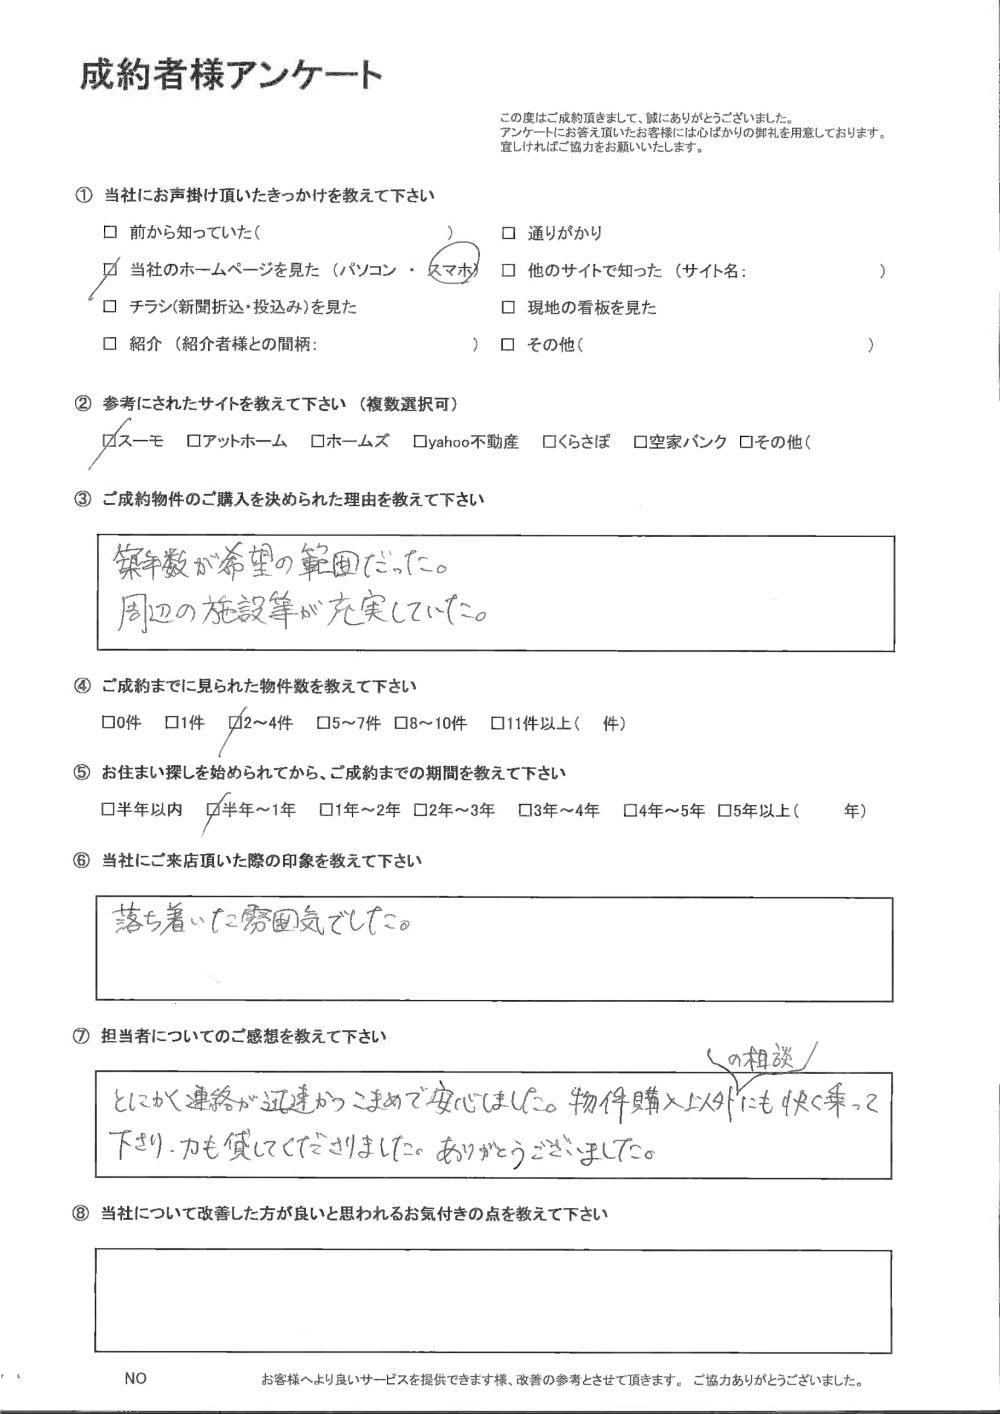 成約者様アンケート
この度はご成約頂きまして、誠にありがとうございました。
アンケートにお答え頂いたお客様には心ばかりの御礼を用意しております。
宜しければご協力をお願いいたします。
① 当社にお声掛け頂いたきっかけを教えて下さい
□ 前から知っていた( ) □ 通りがかり
☑ 当社のホームページを見た (パソコン ・ スマホ) □ 他のサイトで知った (サイト名: )
□ チラシ(新聞折込・投込み)を見た □ 現地の看板を見た
□ 紹介 (紹介者様との間柄: ) □ その他( )
② 参考にされたサイトを教えて下さい (複数選択可)
☑スーモ □アットホーム □ホームズ □yahoo不動産 □くらさぽ □空家バンク □その他(
③ ご成約物件のご購入を決められた理由を教えて下さい
築年数が希望の範囲だった。
周辺の施設等が充実していた。
④ ご成約までに見られた物件数を教えて下さい
□0件 □1件 ☑2～4件 □5～7件 □8～10件 □11件以上( 件)
⑤ お住まい探しを始められてから、ご成約までの期間を教えて下さい
□半年以内 ☑半年～1年 □1年～2年 □2年～3年 □3年～4年 □4年～5年 □5年以上( 年)
⑥ 当社にご来店頂いた際の印象を教えて下さい
落ち着いた雰囲気でした。
⑦ 担当者についてのご感想を教えて下さい
の相談
とにかく連絡が迅速かつこまめで安心しました。物件購入以外にも快く乗って
下さり、力も貸してくださりました。ありがとうございました。
⑧ 当社について改善した方が良いと思われるお気付きの点を教えて下さい
NO お客様へより良いサービスを提供できます様、改善の参考とさせて頂きます。 ご協力ありがとうございました。